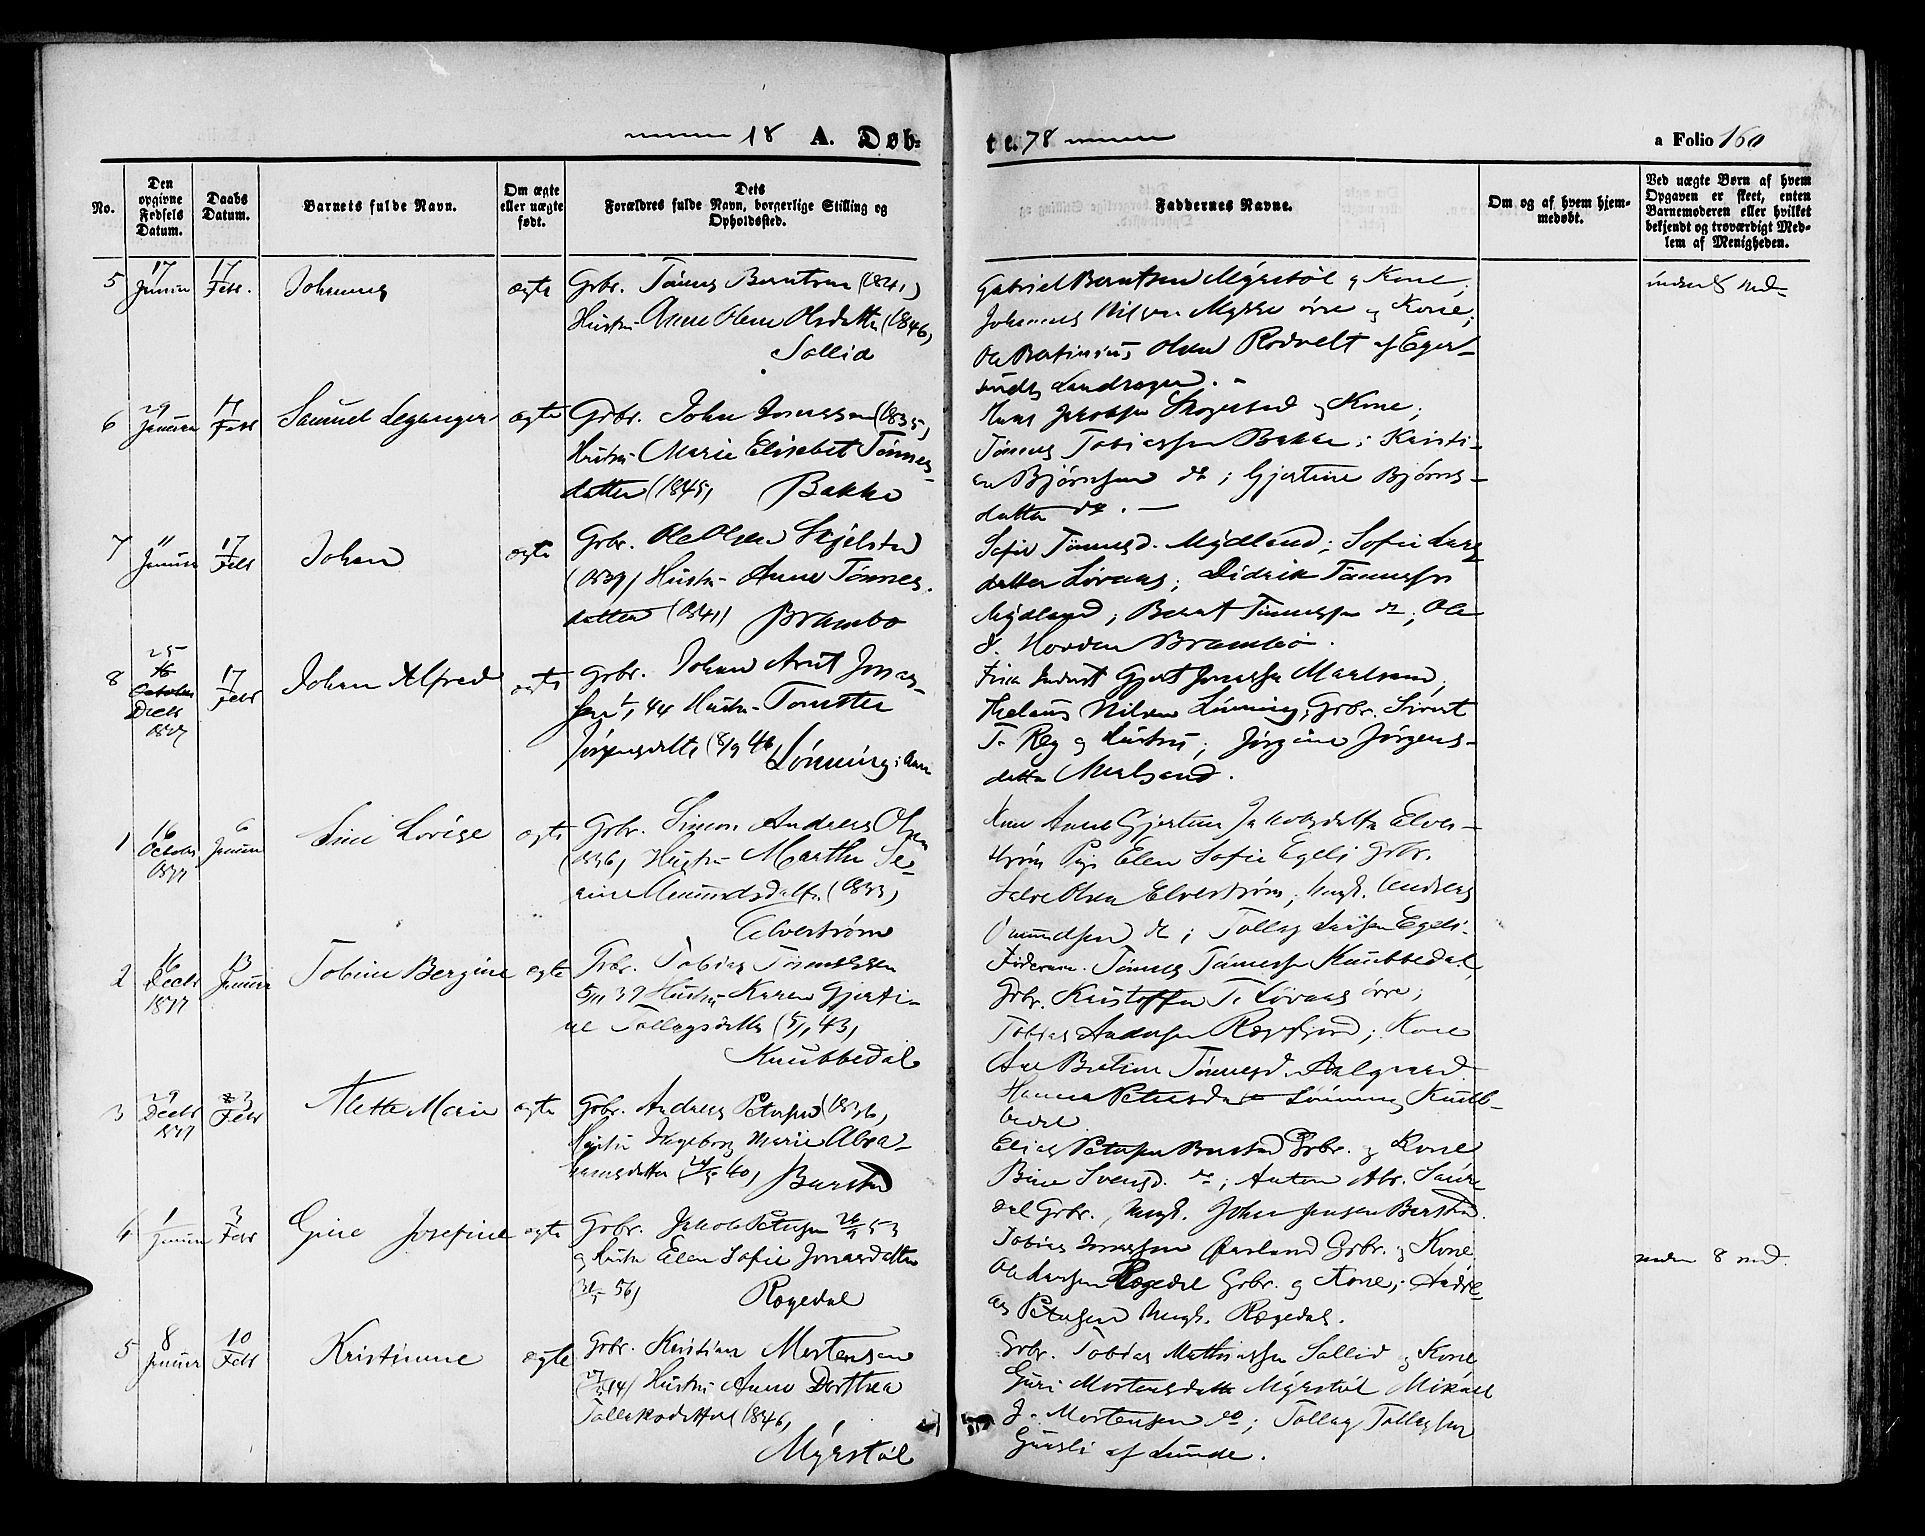 18 A. Døb-
te. 78
a Folio 160
No.
Den opgivne Fødsels Datum.
Daabs Datum.
Barnets fulde Navn.
Om ægte eller uægte født.
Dets Forældres fulde Navn, borgerlige Stilling og Opholdssted.
Faddernes Navne.
Om og af hvem hjemmedøbt.
Ved uægte Børn af hvem Opgaven er skeet, enten Barnemoderen eller hvilket bekjendt og troværdigt Medlem af Menigheden.
5 17 Januar 17 Febr. Johannes ægte Gbr. Tønnes Berntsen (1841)
Hustru Anne Olene Olsdatter (1846)
Sollid
Gabriel Berntsen Myrstøl og Kone;
Johannes Nilsen Mysse øvre og Kone;
Ole Olsen Rodvelt af Eger-
sunds Landsogn. -
6 29 Januar 17 Febr Samuel Leganger ægte Gbr. John Jonassen (1835)
Hustru Marie Elisabet Tønnes-
datter (1845) Bakke
Hans Jakobsen Skogestad og Kone;
Tønnes Tobiassen Bakke; Kristi-
an Bjørnsen do; Gjertine Bjørns-
datter do. -
7 11 Januar 17 Febr Johan ægte Gbr. Ole Olsen Skjelstad
(1839) Hustru Anne Tønnes-
datter (1841) Brambo
Sofie Tønnesd. Mydland; Sofie Lars
datter Løvaas; Didrik Tønnessen
Mydland; Bernt Tønnessen do; Ole
Hovden Brambo.
8 25 Decbr 1877 17 Febr Johan Alfred ægte Gbr. Johan Arnt Jonas-
sen 44 Hustru Tomette
Jørgensdatter (8/9 46) Lønning
Gjert Jonassen Maalsand;
Nilsen Lønning; Gbr. Sivert
T. Reg og Hustru; Jørgine Jørgens-
datter Maalsand.
1 16 October 1877 6 Januar Sine Lovise ægte Gbr. Simon Andreas Olsen
(1836) Hustru Martha Se-
rine Omundsdatter (1833)
Elverstrøm
Kone Anne Gjertine Jakobsdatter Elver-
strøm Pige Elen Sofie Egeli Gbr.
Salve Olsen Elverstrøm; Ungk. Andreas
Omundsen do; Tollag Larsen Egeli.
2 16 Decbr 1877 13 Januar Tobine Bergine ægte Gbr. Tobias Tønnessen
5/11 37 Hustru Karen Gjerti-
ne Tollagsdatter (5/1 43)
Knubbedal
Føderaad. Tønnes Tønnessen Knubbedal,
Gbr. Kristoffer T. Løvaas øvre;
Tobias Andersen Rægefjord; Kone
Ane Bertine Tønnesd. Aalgaard
Hanna Petersdatter Lønning Knub-
bedal
3 29 Decbr 1877 3 Febr Alette Marie ægte Gbr. Andreas Petersen (1836)
Hustru Ingeborg Marie Abra-
hamsdatter 40) Barstad
Elias Petersen Barstad Gbr. og Kone
Bine Svensd. do; Anton Abr. Saure
dal Gbr., Ungk. Johan Jensen Barstad.
4 1 Januar 3 Febr Gine Josefine ægte Gbr. Jakob Petersen 53
og Hustru Elen Sofie Jonasdatter
56) Rægedal
Tobias Jonassen Øvrland Gbr. og Kone
Ole Larsen Rægedal Gbr. og Kone; Andre-
as Petersen Ungk. Rægedal.
inden 8 md.
5 8 Januar 10 Febr Kristinne ægte Gbr. Kristian Mortensen
Hustru Anne Dorthea
Tollaksdatter (1846)
Myrstøl
Gbr. Tobias Mathiassen Sollid og Kone
Guri Mortensdatter Myrstøl Mikael
J. Mortensen do; Tollag Tollagsen
Gursli af Lunde.